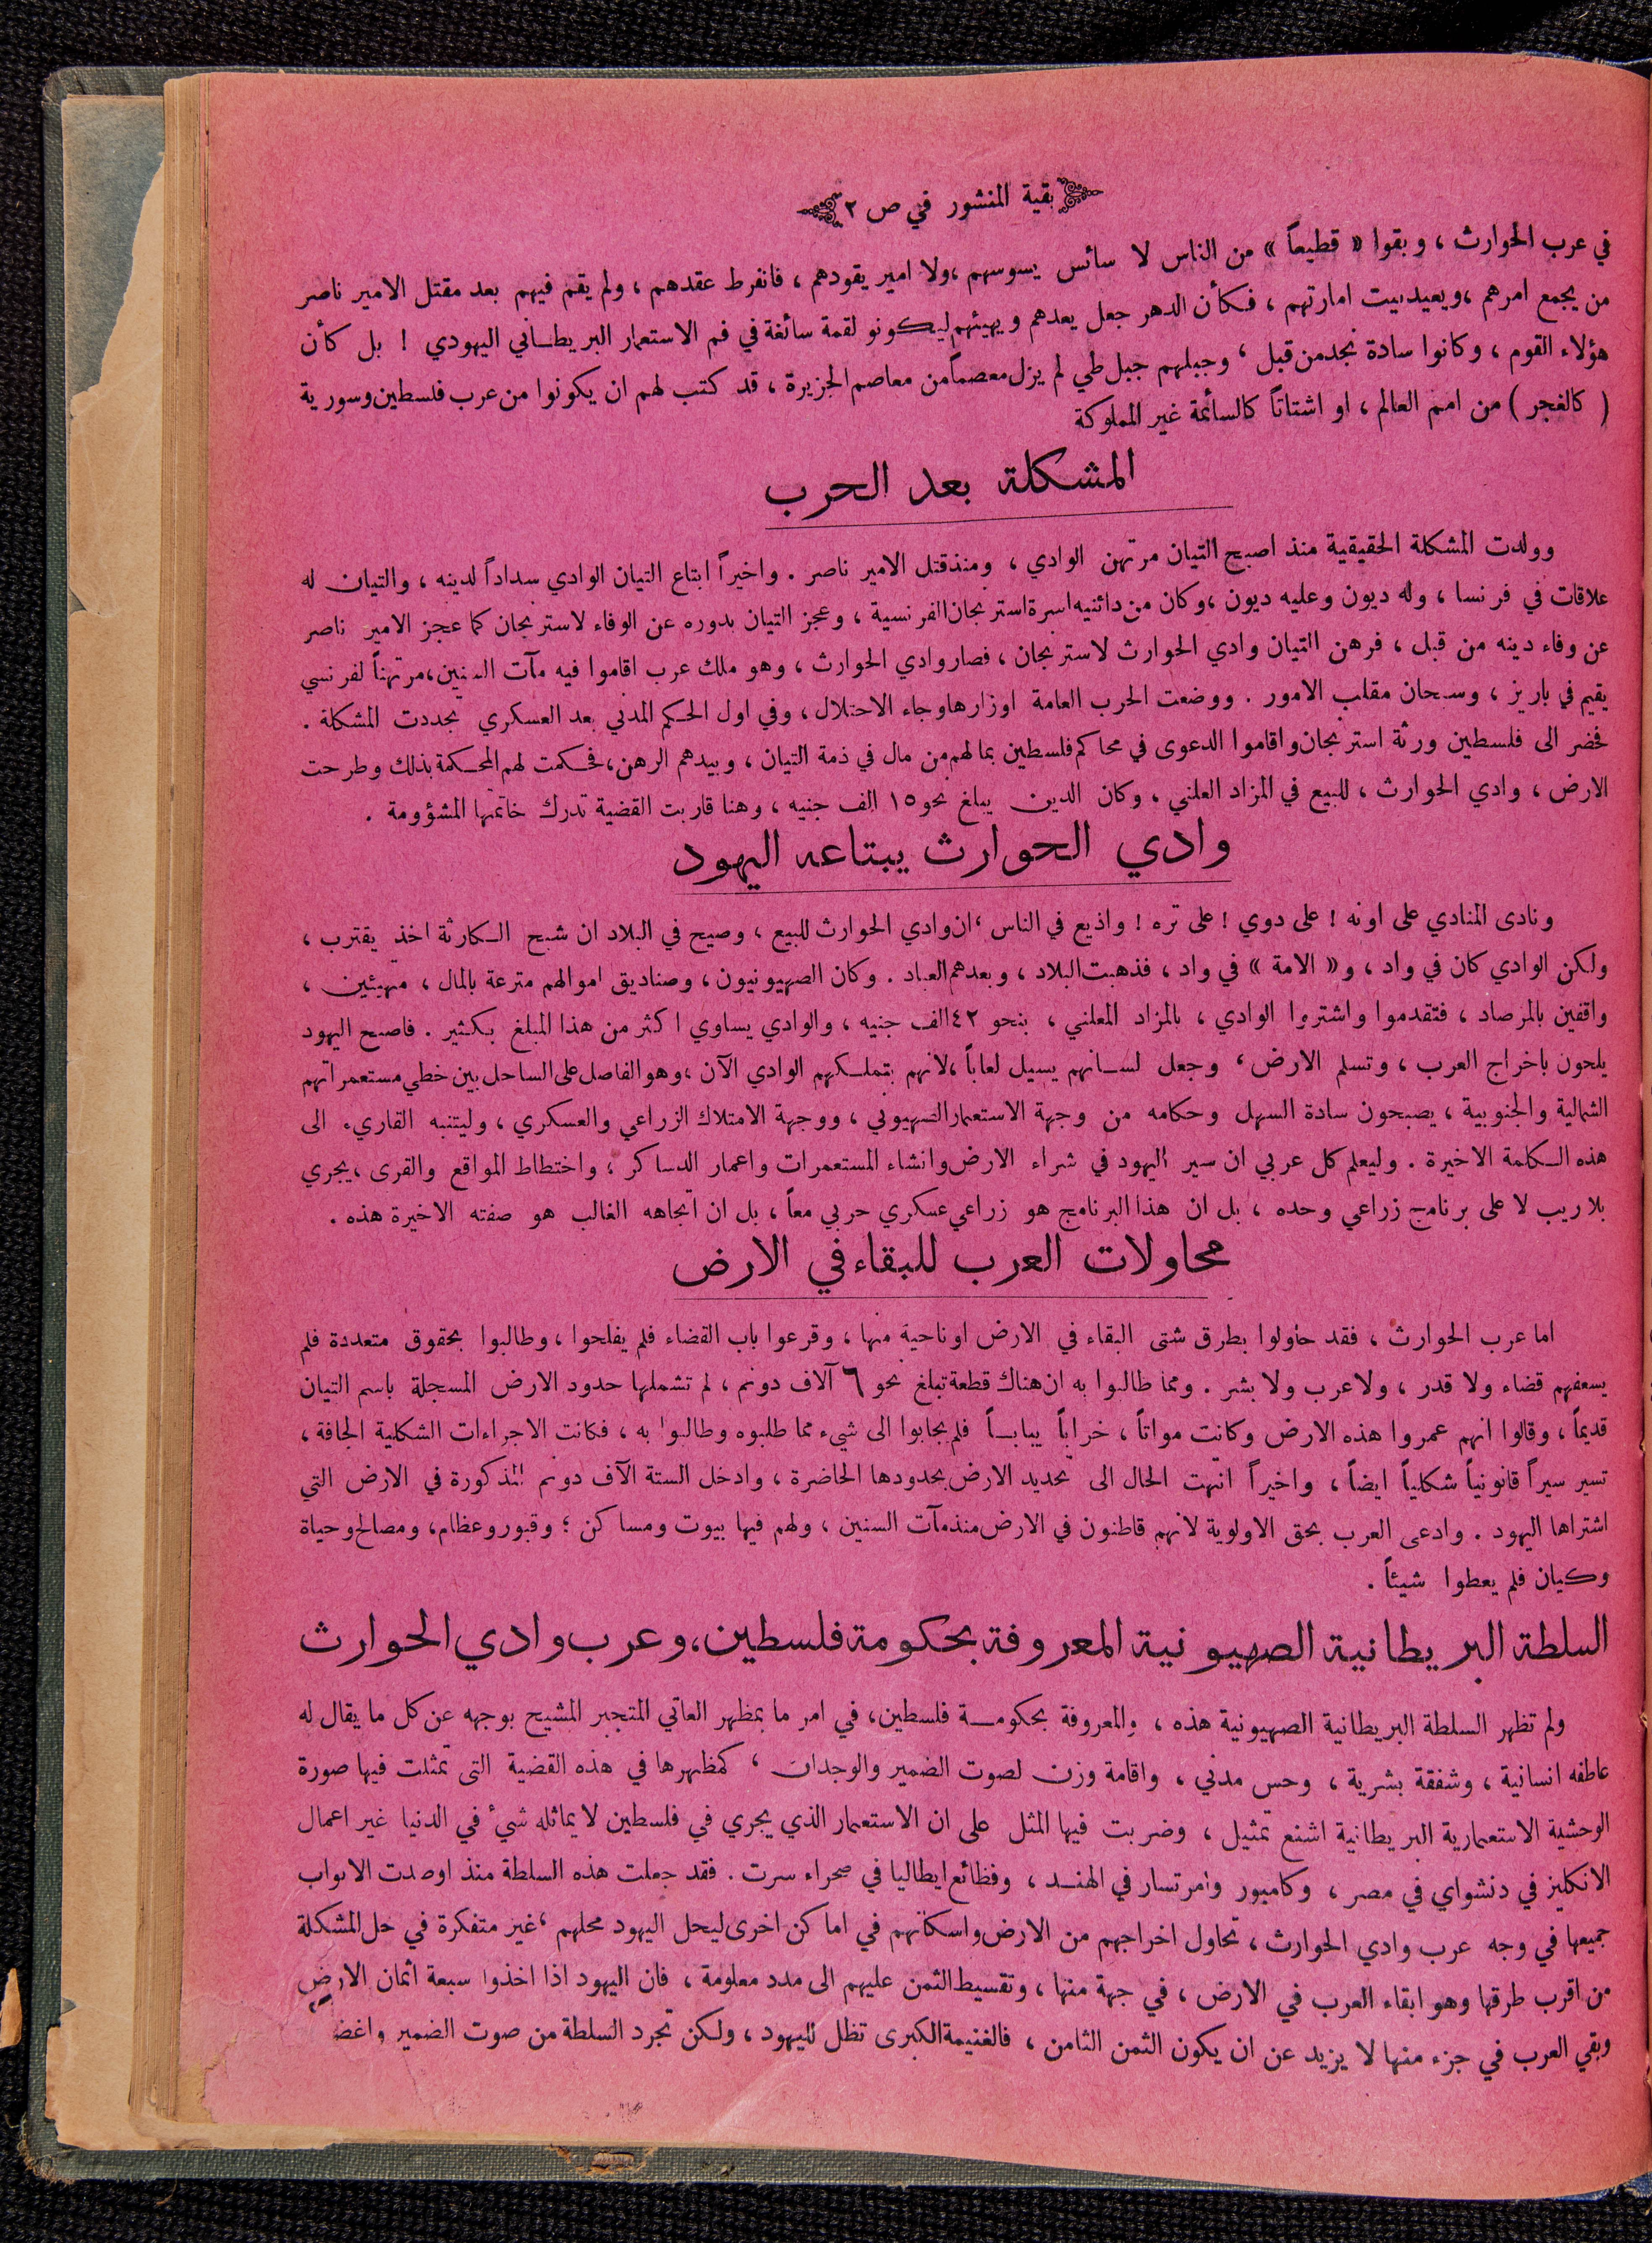 بقية المنشور في ص ٢
في عرب الحوارث ، وبقوا « قطيعاً » من الناس لا سائس يسوسهم ،ولا امير يقودهم ، فانفرط عقدهم ، ولم يقم فيهم بعد مقتل الامير ناصر
من يجمع امرهم ،ويعيد بيت امارتهم ، فكأن الدهر جعل يعدهم ويهيئهم ليكونو لقمة سائغة في فم الاستعمار البريطاني اليهودي ! بل كأن
هؤلاء القوم ، وكانوا سادة نجد من قبل ، وجبلهم جبل طي لم يزل معصماً من معاصم الجزيرة ، قد كتب لهم ان يكونوا من عرب فلسطين وسورية
( كالغجر ) من امم العالم ، او اشتاتاً كالسائمة غير المملوكة
المشكلة بعد الحرب
وولدت المشكلة الحقيقية منذ اصبح التيان مرتهن الوادي ، ومنذ قتل الامير ناصر . واخيراً ابتاع التيان الوادي سداداً لدينه ، والتيان له
علاقات في فرنسا ، وله ديون وعليه ديون ،وكان من دائنيه اسرة استرنجان الفرنسية ، وعجز التيان بدوره عن الوفاء لاسترنجان كما عجز الامير ناصر
عن وفاء دينه من قبل ، فرهن التيان وادي الحوارث لاسترنجان ، فصار وادي الحوارث ، وهو ملك عرب اقاموا فيه مآت السنين ،مرتهناً لفرنسي
يقيم في باريز ، وسبحان مقلب الامور . ووضعت الحرب العامة اوزارها وجاء الاحتلال ، وفي اول الحكم المدني بعد العسكري تجددت المشكلة .
فحضر الى فلسطين ورثة استرنجان واقاموا الدعوى في محاكم فلسطين بما لهم من مال في ذمة التيان ، وبيدهم الرهن ، فحكمت لهم المحكمة بذلك وطرحت
الارض ، وادي الحوارث ، للبيع في المزاد العلني ، وكان الدين يبلغ نحو ١٥ الف جنيه ، وهنا قاربت القضية تدرك خاتمتها المشؤومة .
وادي الحوارث يبتاعه اليهود
ونادى المنادي على اونه ! على دوي ! على تره ! واذيع في الناس ، ان وادي الحوارث للبيع ، وصيح في البلاد ان شبح الكارثة اخذ يقترب ،
ولكن الوادي كان في واد ، و« الامة » في واد ، فذهبت البلاد ، وبعدهم العباد . وكان الصهيونيون ، وصناديق اموالهم مترعة بالمال ، مهيئين ،
واقفين بالمرصاد ، فتقدموا واشتروا الوادي ، بالمزاد المعلني ، بنحو ٤٢ الف جنيه ، والوادي يساوي اكثر من هذا المبلغ بكثير . فاصبح اليهود
يلحون باخراج العرب ، وتسلم الارض ، وجعل لسانهم يسيل لعاباً ،لانهم بتملكهم الوادي الآن ،وهو الفاصل على الساحل بين خطي مستعمراتهم
الشمالية والجنوبية ، يصبحون سادة السهل وحكامه من وجهة الاستعمار الصهيوني ، ووجهة الامتلاك الزراعي والعسكري ، وليتنبه القاريء الى
هذه الكلمة الاخيرة . وليعلم كل عربي ان سير اليهود في شراء الارض وانشاء المستعمرات واعمار الدساكر ، واختطاط المواقع والقرى ،يجري
بلا ريب لا على برنامج زراعي وحده ، بل ان هذا البرنامج هو زراعي عسكري حربي معاً ، بل ان اتجاهه الغالب هو صفته الاخيرة هذه .
محاولات العرب للبقاء في الارض
اما عرب الحوارث ، فقد حاولوا بطرق شتى البقاء في الارض او ناحية منها ، وقرعوا باب القضاء فلم يفلحوا ، وطالبوا بحقوق متعددة فلم
يسعفهم قضاء ولا قدر ، ولا عرب ولا بشر . ومما طالبوا به ان هناك قطعة تبلغ نحو ٦ آلاف دونم ، لم تشملها حدود الارض المسجلة باسم التيان
قديماً ، وقالوا انهم عمروا هذه الارض وكانت مواتاً ، خراباً يباباً فلم يجابوا الى شيء مما طلبوه وطالبوا به ، فكانت الاجراءات الشكلية الجافة ،
تسير سيراً قانونياً شكلياً ايضاً ، واخيراً انتهت الحال الى تحديد الارض بحدودها الحاضرة ، وادخل الستة الآف دونم المذكورة في الارض التي
اشتراها اليهود . وادعى العرب بحق الاولوية لانهم قاطنون في الارض منذ مآت السنين ، ولهم فيها بيوت ومساكن ؛ وقبور وعظام ، ومصالح وحياة
وكيان فلم يعطوا شيئاً .
السلطة البريطانية الصهيونية المعروفة بحكومة فلسطين، وعرب وادي الحوارث
ولم تظهر السلطة البريطانية الصهيونية هذه ، والمعروفة بحكومة فلسطين، في امر ما بمظهر العاتي المتجبر المشيح بوجهه عن كل ما يقال له
عاطفه انسانية ، وشفقة بشرية ، وحس مدني ، واقامة وزن لصوت الضمير والوجدان ، كمظهرها في هذه القضية التى تمثلت فيها صورة
الوحشية الاستعمارية البريطانية اشنع تمثيل ، وضربت فيها المثل على ان الاستعمار الذي يجري في فلسطين لا يماثله شيء في الدنيا غير اعمال
الانكليز في دنشواي في مصر ، وكامبور وامرتسار في الهند ، وفظائع ايطاليا في صحراء سرت . فقد جعلت هذه السلطة منذ اوصدت الابواب
جميعها في وجه عرب وادي الحوارث ، تحاول اخراجهم من الارض واسكانهم في اماكن اخرى ليحل اليهود محلهم ، غير متفكرة في حل المشكلة
من اقرب طرقها وهو ابقاء العرب في الارض ، في جهة منها ، وتقسيط الثمن عليهم الى مدد معلومة ، فان اليهود اذا اخذوا سبعة اثمان الارض
وبقي العرب في جزء منها لا يزيد عن ان يكون الثمن الثامن ، فالغنيمة الكبرى تظل لليهود ، ولكن تجرد السلطة من صوت الضمير